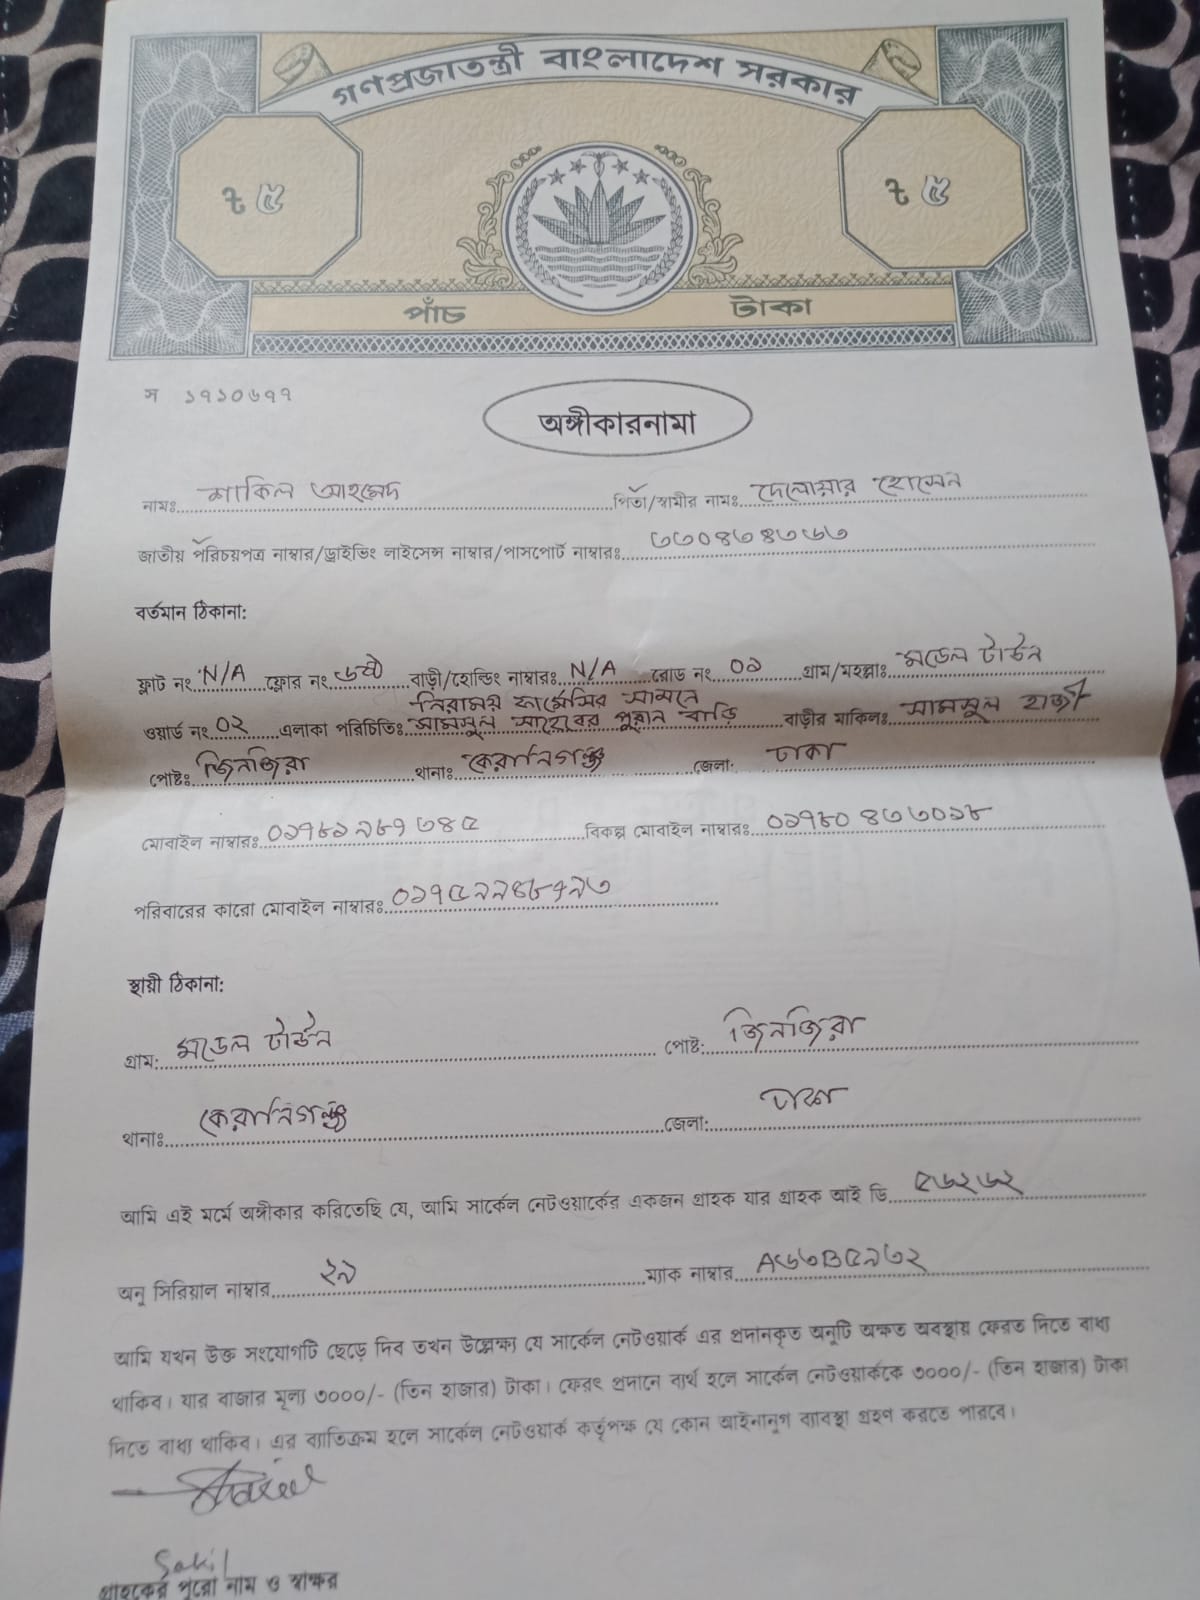 গণপ্রজাতন্ত্রী বাংলাদেশ সরকার
৳ ৫ ৳ ৫
পাঁচ টাকা
স ১৭১০৬৭৭
অঙ্গীকারনামা
নামঃ শাকিল আহমেদ পিতা/স্বামীর নামঃ দেলোয়ার হোসেন
জাতীয় পরিচয়পত্র নাম্বার/ড্রাইভিং লাইসেন্স নাম্বার/পাসপোর্ট নাম্বারঃ ৩৩০৪৮৪৩৬৩
বর্তমান ঠিকানা:
ফ্লাট নং N/A ফ্লোর নং ৬ষ্ঠ বাড়ী/হোল্ডিং নাম্বারঃ N/A রোড নং ০১ গ্রাম/মহল্লাঃ মডেল টাউন
নিরাময় ফার্মেসির সামনে
ওয়ার্ড নং ০২ এলাকা পরিচিতিঃ সামসুল সাহেবের পুরান বাড়ি বাড়ীর মালিকঃ সামসুল হাজী
পোষ্টঃ জিনজিরা থানাঃ কেরানিগঞ্জ জেলা: ঢাকা
মোবাইল নাম্বারঃ ০১৭৮১৯৮৭৩৪৫ বিকল্প মোবাইল নাম্বারঃ ০১৭৮০৪৩৩০১৮
পরিবারের কারো মোবাইল নাম্বারঃ
স্থায়ী ঠিকানা:
গ্রাম: মডেল টাউন পোষ্ট: জিনজিরা
থানাঃ কেরানিগঞ্জ জেলা: ঢাকা
আমি এই মর্মে অঙ্গীকার করিতেছি যে, আমি সার্কেল নেটওয়ার্কের একজন গ্রাহক যার গ্রাহক আই ডি ৫৬২৬২
অনু সিরিয়াল নাম্বার ২৯ ম্যাক নাম্বার A৬৩B৫৯৩২
আমি যখন উক্ত সংযোগটি ছেড়ে দিব তখন উল্লেক্ষ্য যে সার্কেল নেটওয়ার্ক এর প্রদানকৃত অনুটি অক্ষত অবস্থায় ফেরত দিতে বাধ্য
থাকিব। যার বাজার মূল্য ৩০০০/- (তিন হাজার) টাকা। ফেরৎ প্রদানে ব্যর্থ হলে সার্কেল নেটওয়ার্ককে ৩০০০/- (তিন হাজার) টাকা
দিতে বাধ্য থাকিব। এর ব্যতিক্রম হলে সার্কেল নেটওয়ার্ক কর্তৃপক্ষ যে কোন আইনানুগ ব্যাবস্থা গ্রহণ করতে পারবে।
Sakil
গ্রাহকের পুরো নাম ও স্বাক্ষর